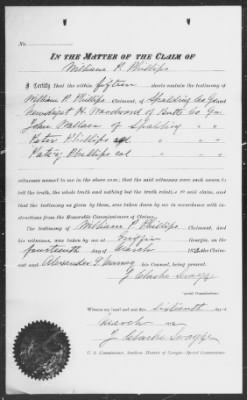 IN THE MATTER OF THE CLAIM OF
William P. Phillips
I Certify that the within fifteen sheets contain the testimony of
William P. Phillips Claimant, of Spalding Co Ga and
H. Woodward of Butts Co Ga
John Wallace of Spalding " "
Peter Phillips col " "
Patsy Phillips col " "
witnesses named to me in the above case; that the said witnesses were each sworn to
tell the truth, the whole truth and nothing but the truth relative to said claim, and
that the testimony as given by them, was taken down by me in accordance with in-
structions from the Honorable Commissioners of Claims.
The testimony of William P. Phillips Claimant, and
his witnesses, was taken by me at Griffin Georgia, on the
fourteenth day of March the Claim-
ant and Alexander his Counsel, being present.
J Clarke Swayze
Special Commissioner.
Witness my hand and seal this sixteenth day of
March
J Clarke Swayze
U. S. Commissioner, Southern District of Georgia—Special Commissioner.